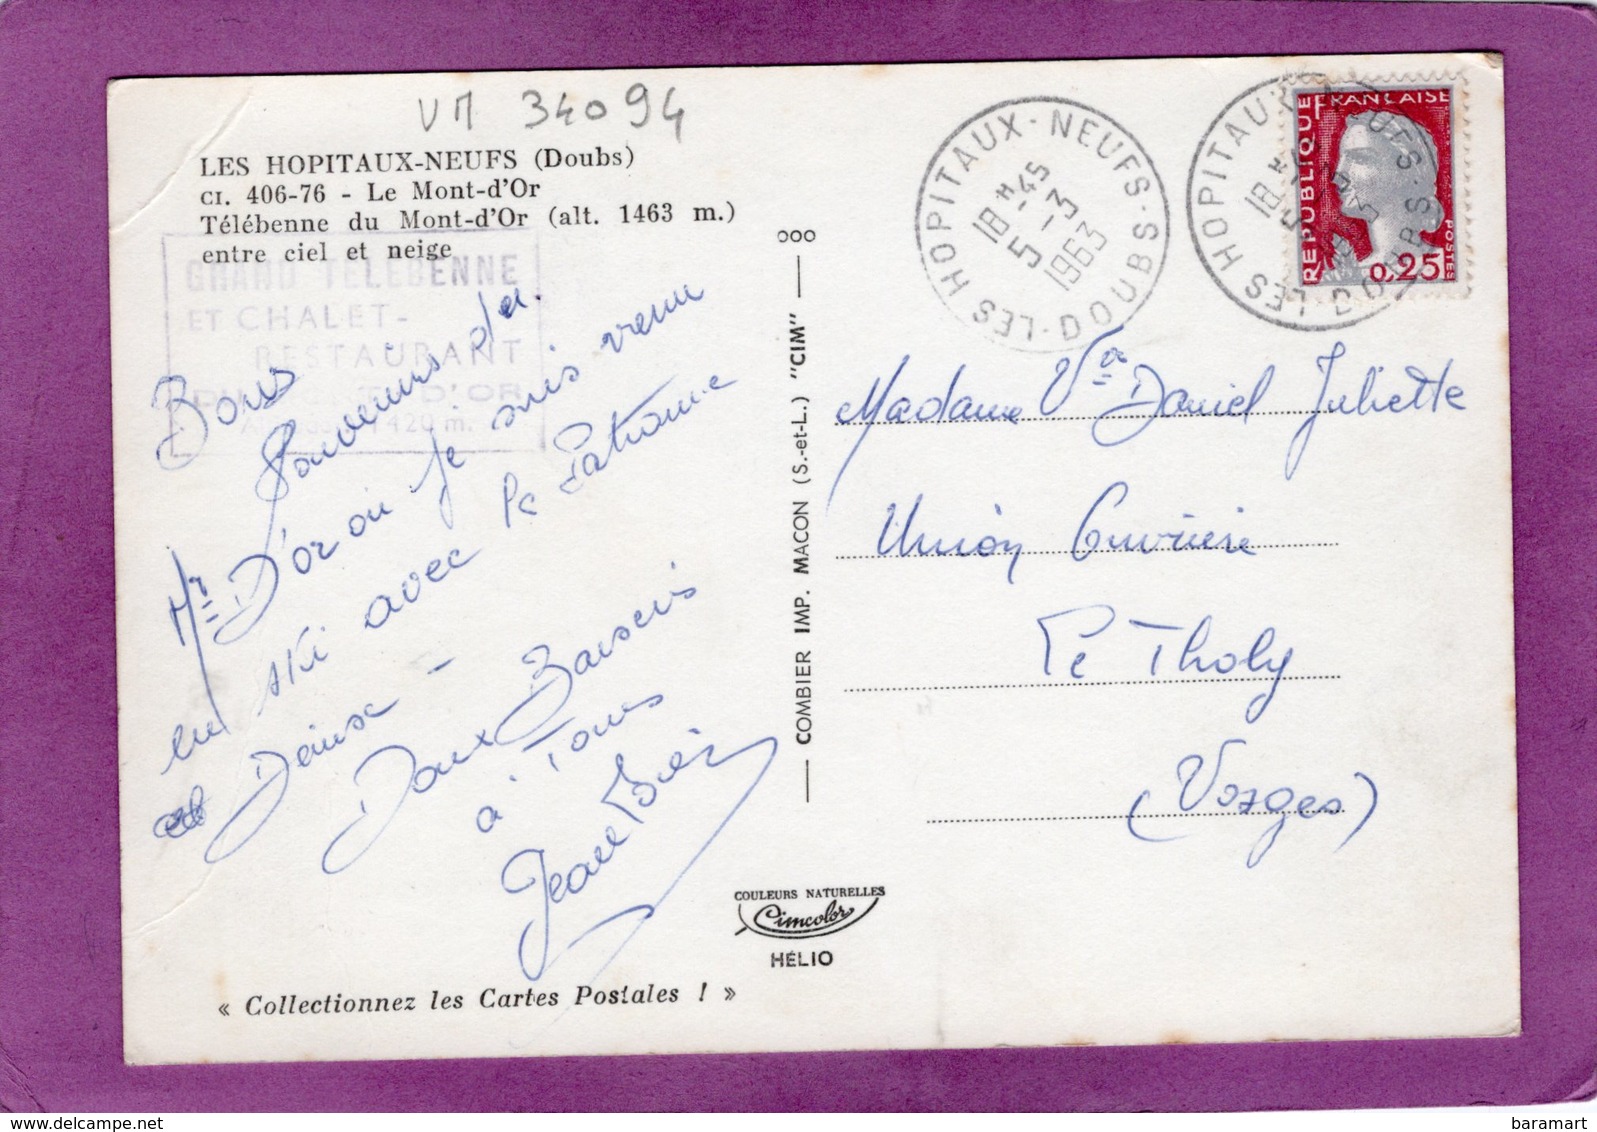 VM 34094
LES HOPITAUX-NEUFS (Doubs)
CI. 406-76 - Le Mont-d'Or
Télébenne du Mont-d'Or (alt. 1463 m.)
entre ciel et neige
GRAND TELEBENNE
ET CHALET-
RESTAURANT
D'OR
1420 m.
Bons
Souvenirs du
Mt D'or ou je suis venu
en ski avec la Patronne
et Denise -
Doux Baisers
à Tous
COMBIER IMP. MACON (S.-et-L.) "CIM"
ooo
LES HOPITAUX-NEUFS · DOUBS
18H-45
5-3
1963
LES HOPITAUX
18H
DOUBS
REPUBLIQUE FRANCAISE
POSTES
0,25
Madame Ve Daniel Juliette
Union Ouvrière
Le Tholy
(Vosges)
COULEURS NATURELLES
Cimcolor
HÉLIO
« Collectionnez les Cartes Postales ! »
baramart